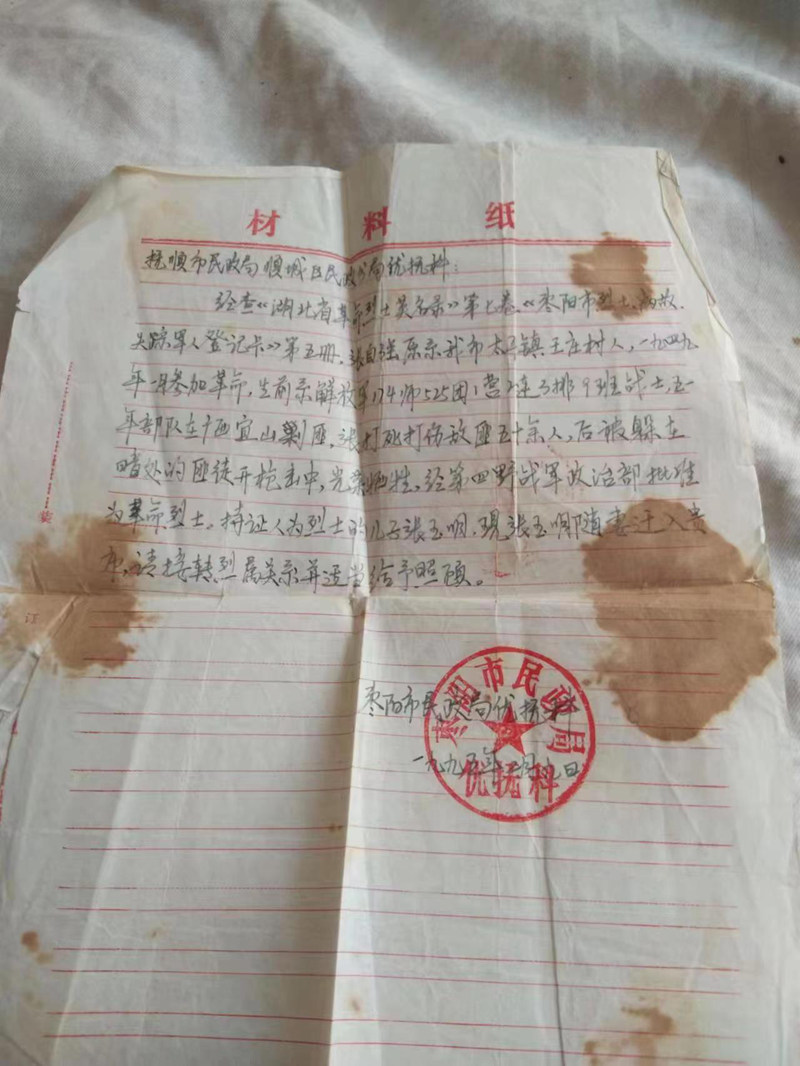 材料纸
抚顺市民政局顺城区民政分局优抚科：
经查《湖北省革命烈士英名录》第七卷、《枣阳市烈士、病故、
失踪军人登记卡》第五册，张自强原系我市太平镇王庄村人，一九四九
年一月参加革命，生前系解放军174师525团1营2连3排9班战士，五一
年部队在广西宜山剿匪，张打死打伤敌匪五十余人，后被躲在
暗处的匪徒开枪击中，光荣牺牲，经第四野战军政治部批准
为革命烈士。持证人为烈士的儿子张玉明，现张玉明随妻迁入贵
市，请接转烈属关系并适当给予照顾。
枣阳市民政局优抚科
一九九五年 月九日
枣阳市民政局
优抚科
装
订